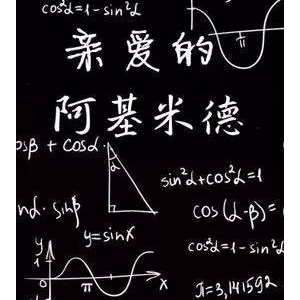 cos²α=1-sin²α
π
亲爱的
阿基米德
osβ + cosα·
α
sin²α+cos²α=1
nα· sinβ
cos(α-β)=
y=sinx
y
1
cos²α=1-sin²α
π
x
π=3,141592